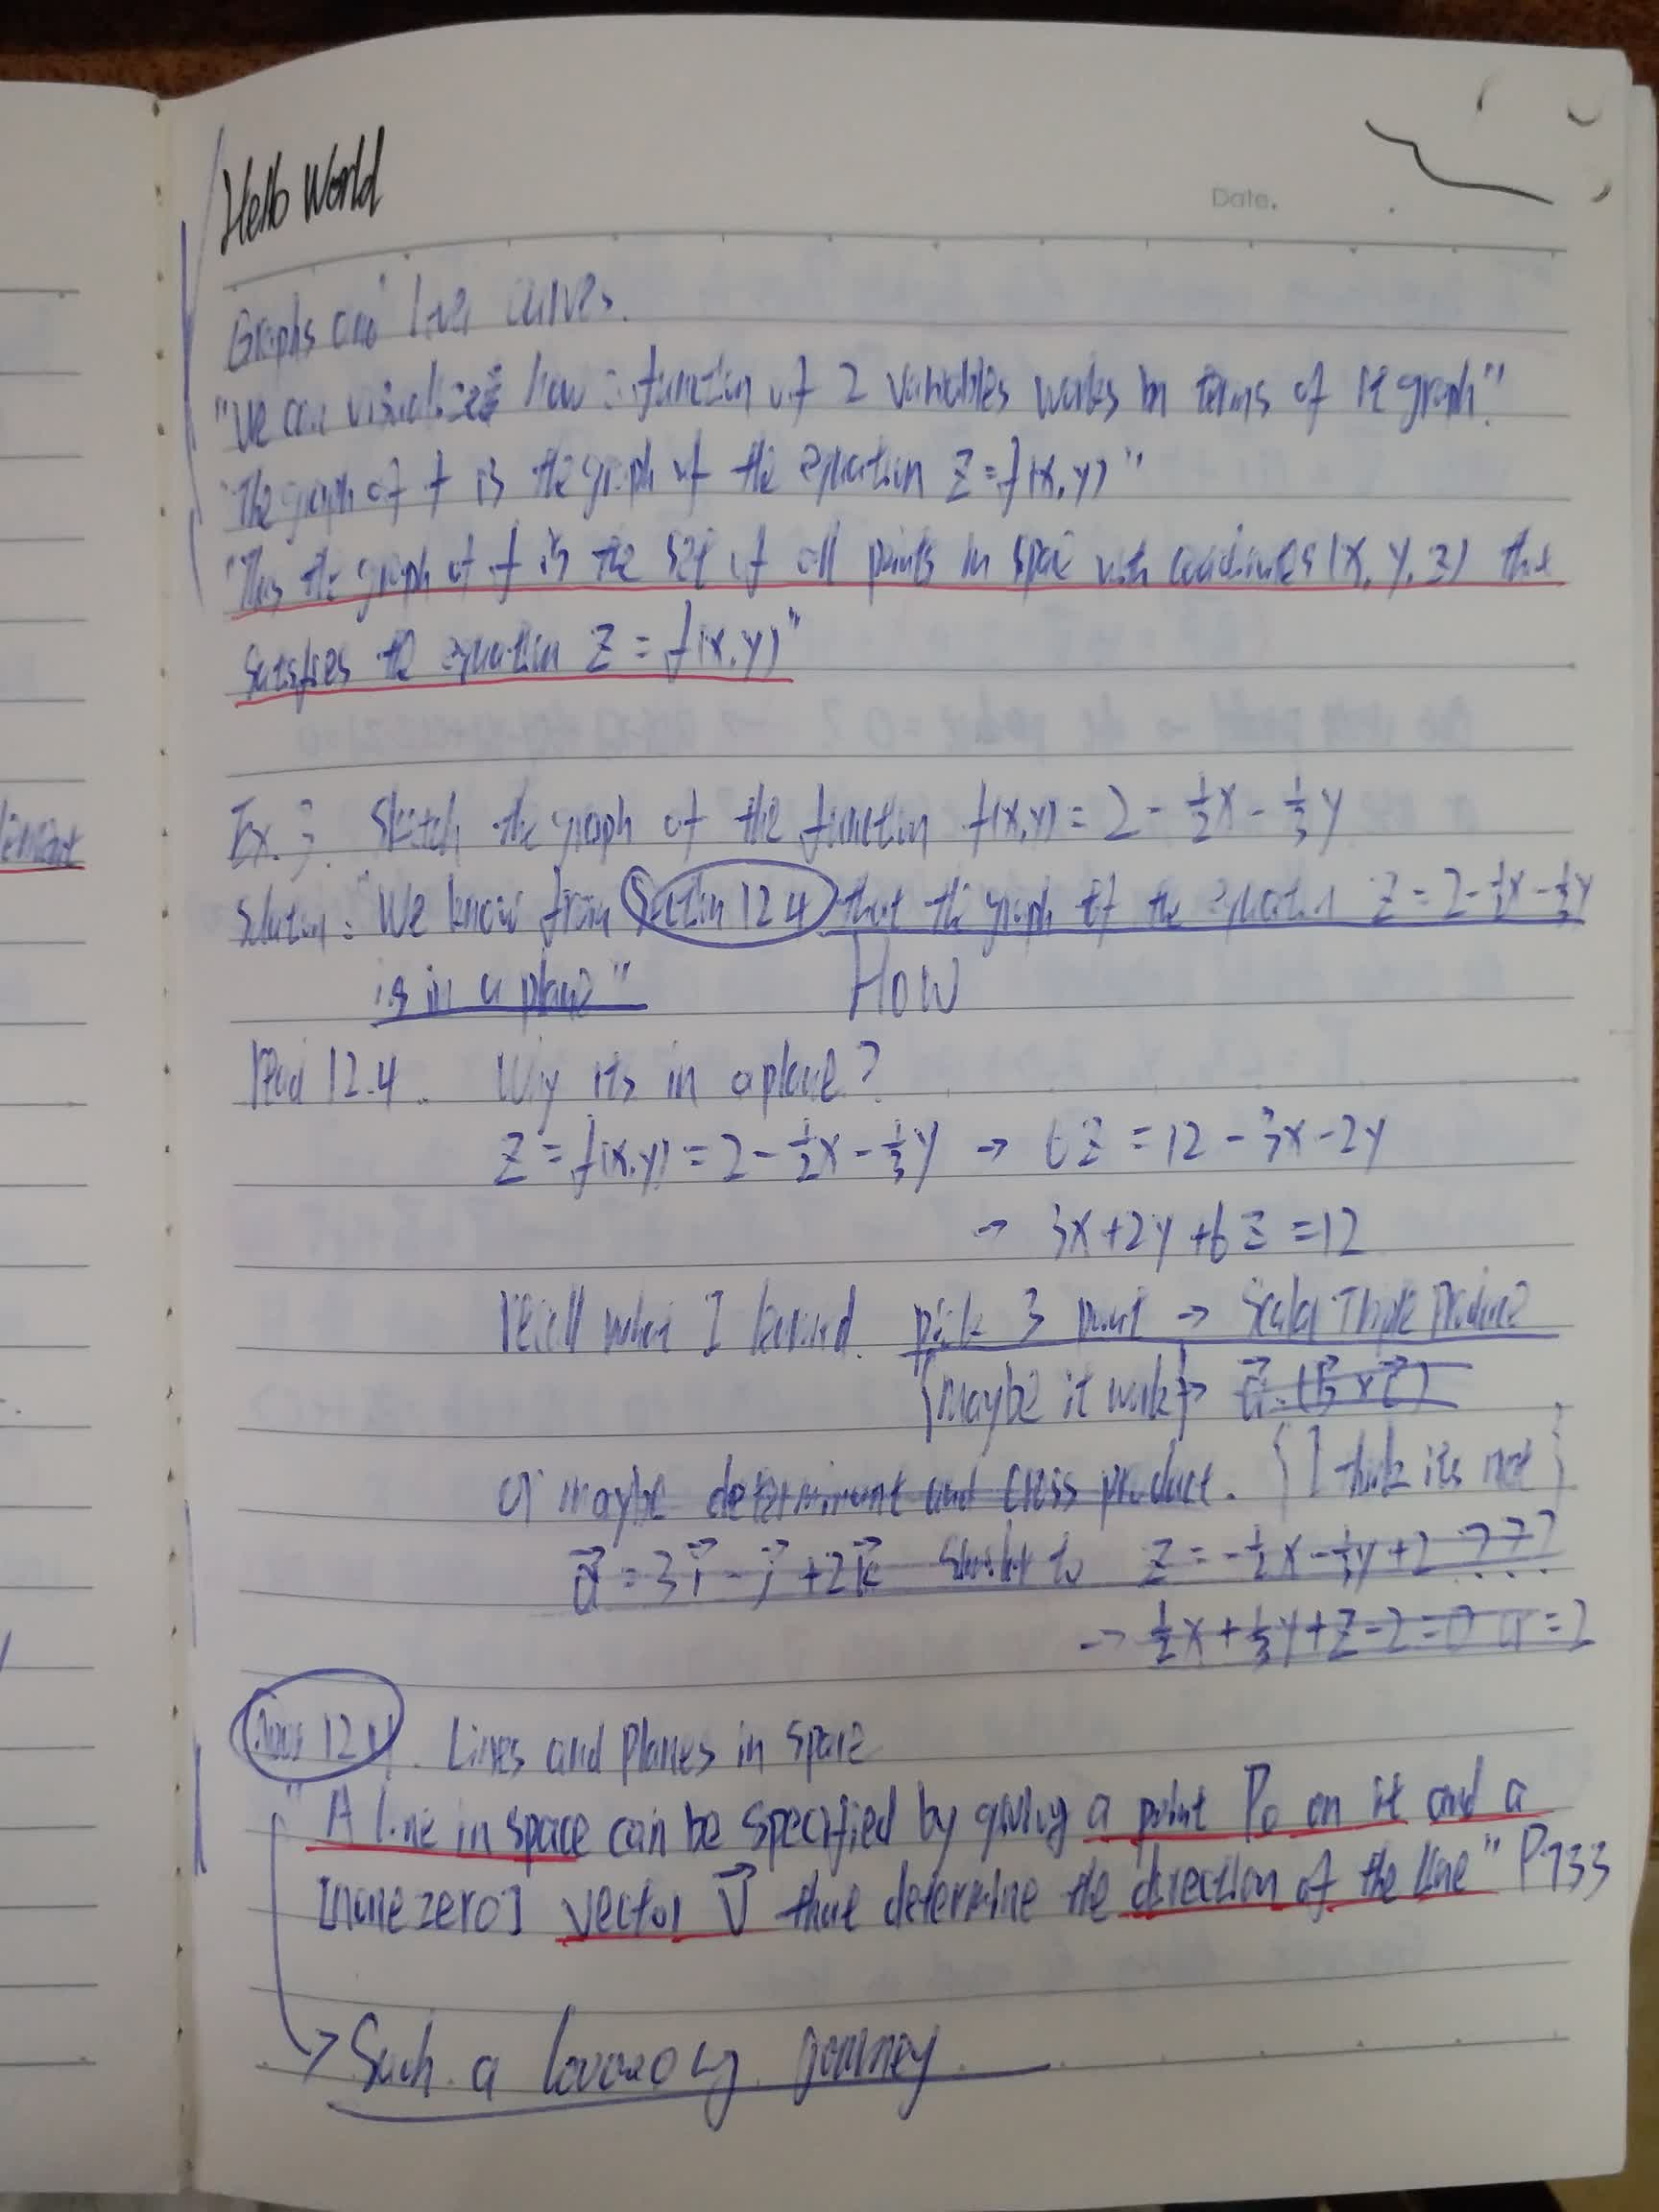 Hello World
Date.
Graphs and level curves.
"We can visualize how a function of 2 variables works in terms of it graph"
"The graph of f is the graph of the equation Z = f(x,y)"
"Thus the graph of f is the set of all points in space with coordinates (x, y, z) that
satisfies the equation Z = f(x,y)"
Ex. 3. Sketch the graph of the function f(x,y) = 2 - 1/2x - 1/3y
Solution: "We know from Section 12.4 that the graph of the equation Z = 2 - 1/2x - 1/3y
is in a plane" How
Read 12.4. Why its in a plane?
Z = f(x,y) = 2 - 1/2x - 1/3y → 6Z = 12 - 3x - 2y
→ 3x + 2y + 6Z = 12
recall when I learned. pick 3 point → Scalar Triple Product
{maybe it work} → a⃗·(b⃗ × c⃗)
or maybe determinant and cross product. {I think its not}
a⃗ = 3i⃗ - j⃗ + 2k⃗ Similar to Z = -1/2x - 1/3y + 2 ???
→ 1/2x + 1/3y + Z - 2 = 0 or = 2
12.4. Lines and Planes in Space
"A line in space can be specified by giving a point P₀ on it and a
[none zero] vector V⃗ that determine the direction of the line" P733
→ Such a journey
ement